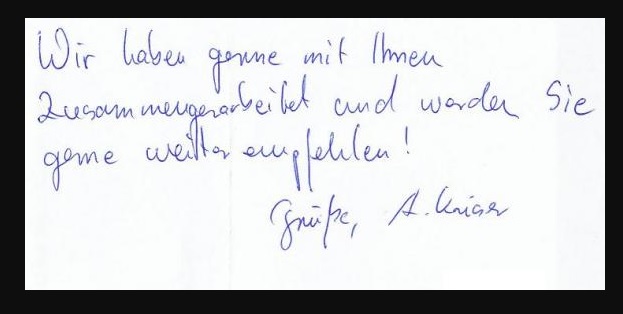 Wir haben gerne mit Ihnen
zusammengearbeitet und werden Sie
gerne weiterempfehlen!
Grüße, A.